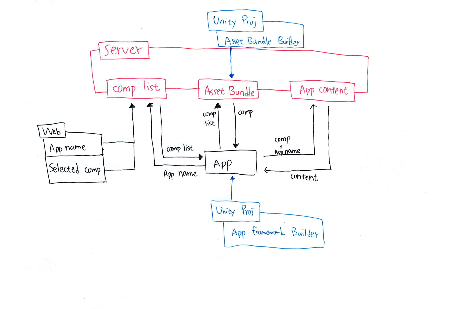 Unity Proj
Asset Bundle Builter
Server
comp list
Asset Bundle
App content
comp
list
comp
Web
App name
Selected comp
comp list
App name
App
comp
App name
content
Unity Proj
App Framework Builder